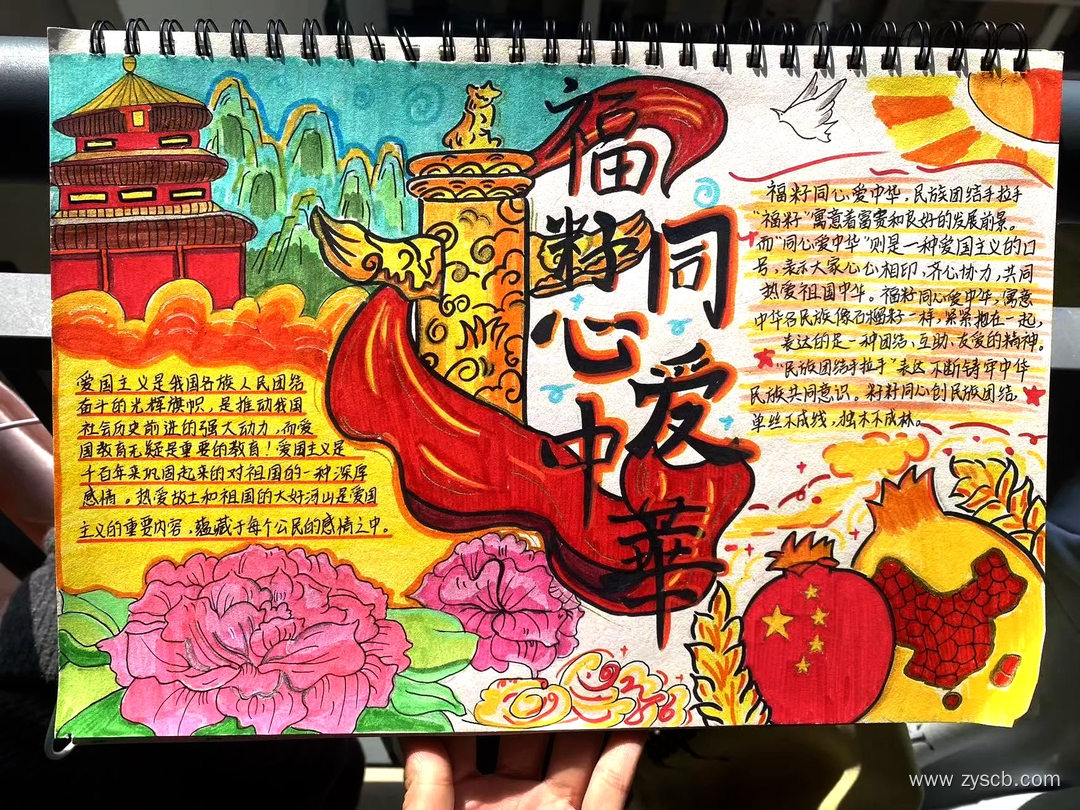 福籽
同心
爱中華
爱国主义是我国各族人民团结
奋斗的光辉旗帜，是推动我国
社会历史前进的强大动力，而爱
国教育无疑是重要的教育！爱国主义是
千百年来巩固起来的对祖国的一种深厚
感情。热爱故土和祖国的大好河山是爱国
主义的重要内容，蕴藏于每个公民的感情之中。
福籽同心爱中华，民族团结手拉手
“福籽”寓意着富赛和良好的发展前景。
而“同心爱中华”则是一种爱国主义的口
号，表示大家心心相印，齐心协力，共同
热爱祖国中华。福籽同心爱中华，寓意
中华名民族像石榴籽一样，紧紧抱在一起，
表达的是一种团结、互助、友爱的精神。
“民族团结手拉手”表达不断铸牢中华
民族共同意识，籽籽同心创民族团结，
单丝不成线，独木不成林。
www.zyscb.com